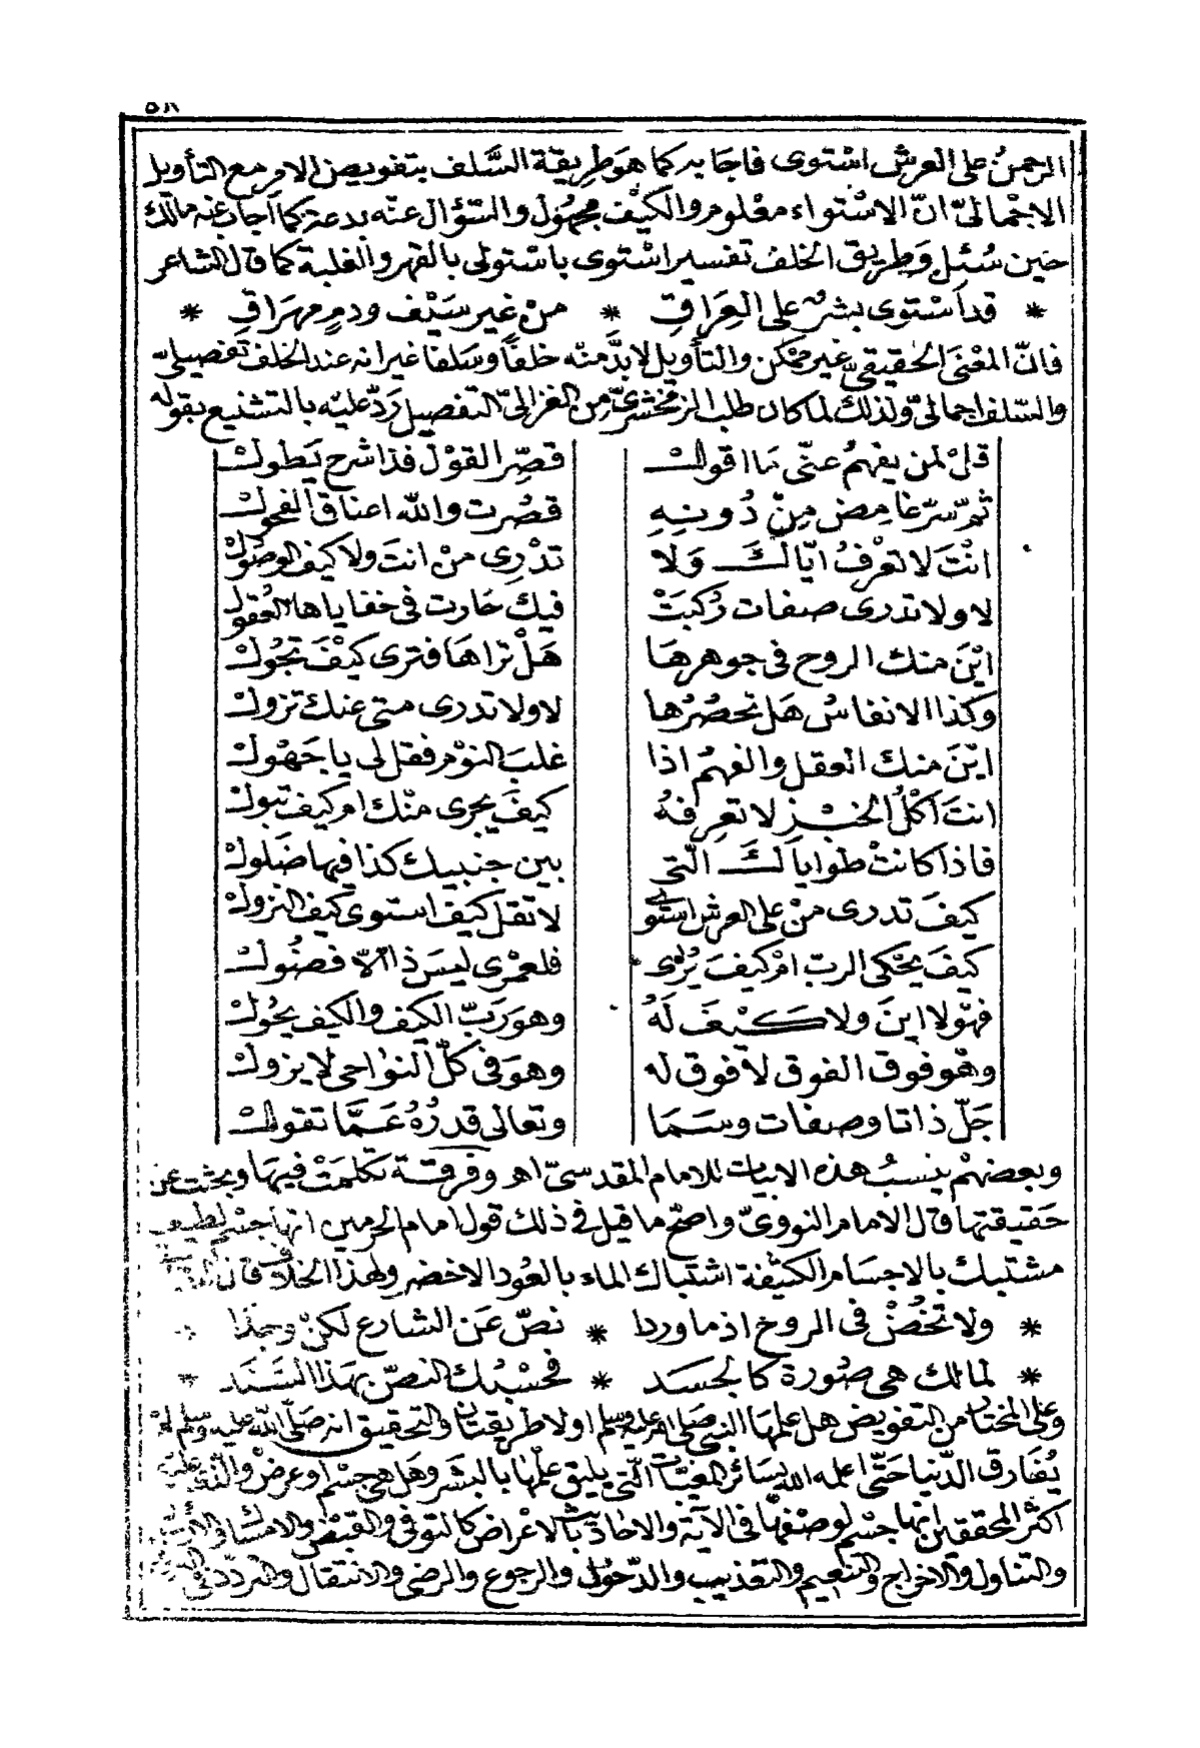 ٥٨١
الرحمنُ على العرش اسْتوى فاجَابه كما هوَ طريقة السَّلف بتفويض الامر مع التأويل
الاجْمالىّ انّ الاسْتواء معْلوم والكيْف مجهُول والسّؤال عنْه بدعة كما أجاب عنه مالك
حين سُئل وَطريق الخلف تفسير اسْتوى باسْتولى بالقهر والغلبة كما قال الشاعر
* قد اسْتوى بشرٌ على العِرَاقِ * منْ غير سَيْف ودمٍ مهرَاقِ *
فانّ المعْنَى الحقيقىّ غير ممْكن والتأويل لابدَّ منْه خلفاً وسَلفا غير انه عند الخلف تفصيلىّ
والسّلف اجمالىّ ولذلك لما كان طلب الزمخشرىّ من الغزالىّ التفصيل رَدّ عليْه بالتشنيع بقوله
قلْ لمن يفهمُ عنّى مَا اقولْ قصّر القوْل فذا شرح يَطولْ
ثمّ سرّ غامِض مِنْ دُونِهِ قصُرت والله اعناق الفحولْ
انْتَ لا تعْرفُ ايّاكَ وَلا تدْرِى منْ انتَ ولا كيف الوصُولْ
لا ولا تدرى صفات رُكبَتْ فيكَ حَارت فى خفاياها العُقولْ
ايْنَ منك الروح فى جوهرهَا هَلْ تراهَا فترى كيْفَ تجُولْ
وكذا الانفاسُ هَل تحصُرُها لا ولا تدرى متى عنك تزولْ
ايْنَ منك العقل والفهمُ اذا غلبَ النوْم فقل لى يا جَهُولْ
انتَ آكلُ الخبْز لا تعرفهُ كيفَ يجرى منْك ام كيف تبولْ
فاذا كانتْ طوَاياكَ الّتى بين جنبيك كذا فيها ضَلولْ
كيفَ تدرى منْ على العرش اسْتَوى لا تقل كيف استوى كيف النزولْ
كيفَ يحْكى الربّ امْ كيفَ يُرَى فلعمْرى ليسَ ذا الّا فضُولْ
فهوْ لا اينَ ولا كيْفَ لَهُ وهوَ رَبّ الكيف والكيف يحُولْ
وهْو فوق الفوق لا فوق له وهوَ فى كلّ النوَاحى لا يزولْ
جَلّ ذاتا وصفات وسَمَا وتعالى قدرُهُ عَمَّا تقولْ
وبعضهمْ ينسبُ هذه الابيات للامام المقدسىّ اهـ وفرقة تكلمَتْ فيهَا وبحثت عن
حَقيقتها قال الامام النووىّ واصحّ ما قيل فى ذلك قول امام الحرمين انها جسْم لطيف
مشتبك بالاجسام الكثيفة اشتباك الماء بالعُود الاخضر ولهذا الخلاف قال
* ولا تخُضْ فى الروحِ اذ ما وردا * نصّ عَن الشارع لكنْ وجدَا
* لمالك هى صُورَة كالجسَد * فحَسْبُك النصّ بهَذا السّنَد *
وعلى المختار من التفويض هل علمهَا النبى صَلى الله عليه وسلم اولا طريقتان والتحقيق انه صَلّى الله عليه وسلم لمْ
يُفَارق الدّنيا حَتّى اعلمه الله بسَائر المغيّبات الّتى يليق علْمها بالبشر وهَل هى جسْم او عرضْ والّذى عليْه
اكثر المحققين انها جسْم لوصْفها فى الآية والاحاديث بالاعْراض كالتوفى والقبْض والامسَاك والارسال
والتناول والاخراج والتنعيم والتعذيب والدّخُول والرجوع والرضى والانتقال والتردّد فى البرزخ